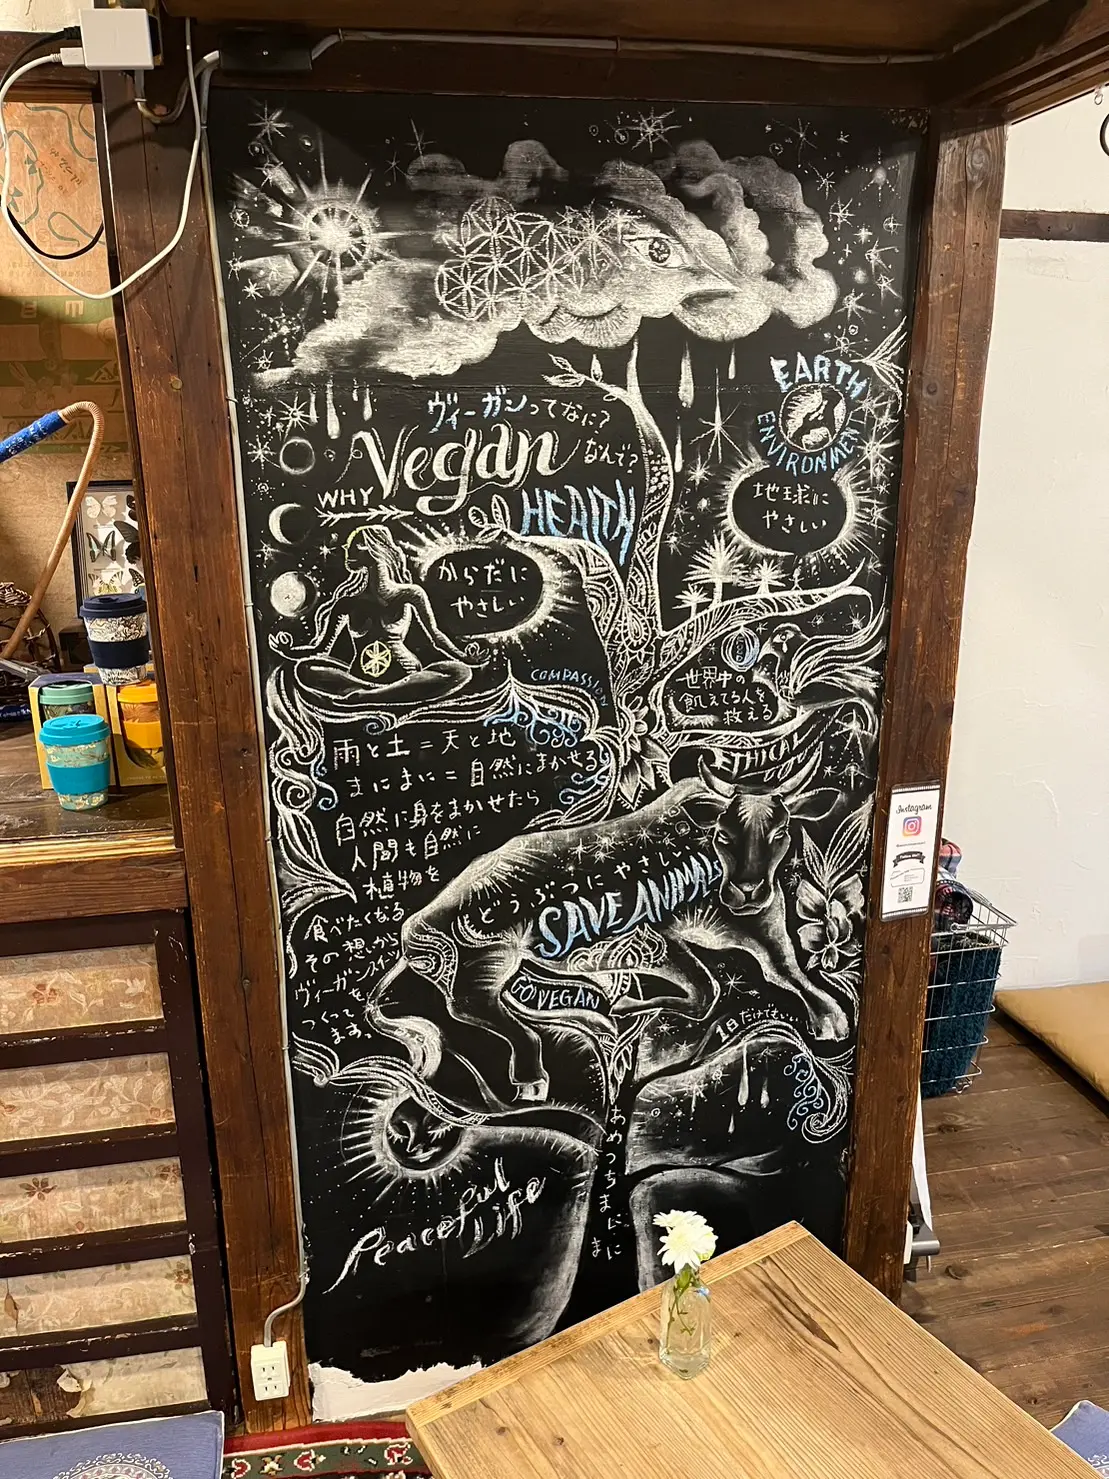 ヴィーガンってなに?
Vegan
なんで?
WHY
HEALTH
EARTH
ENVIRONMENT
地球に
やさしい
からだに
やさしい
COMPASSION
世界中の
飢えてる人を
救える
ETHICAL
雨と土=天と地
まにまに=自然にまかせる
自然に身をまかせたら
人間も自然に
植物を
食べたくなる
その想いから
ヴィーガンスイーツを
つくって
ます。
どうぶつにやさしい
SAVE ANIMALS
GO VEGAN
1日だけでもいい
あめつちまにまに
Peaceful
Life
Instagram